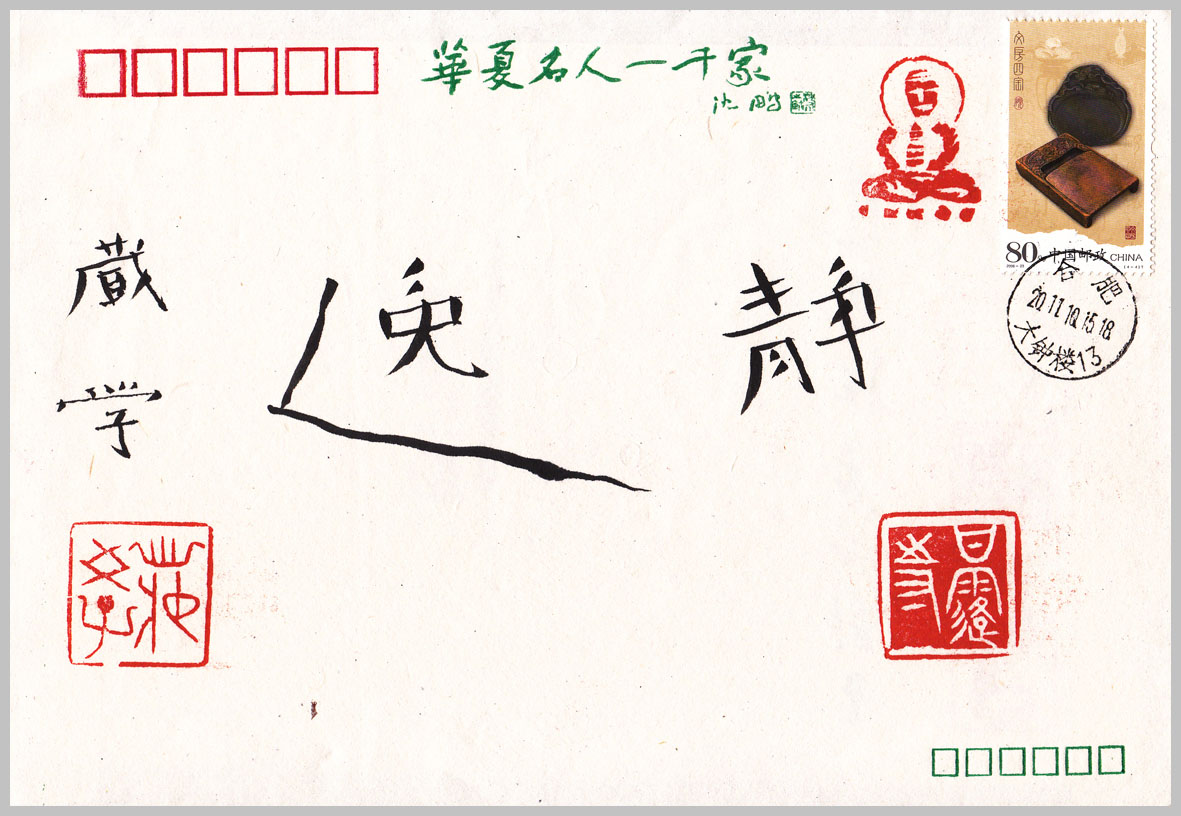 華夏名人一千家
沈鹏
文房四宝
80分 中国邮政 CHINA
2006-23 (4-4)T
合肥
2011.10.15.18
大钟楼13
静逸
蔵学